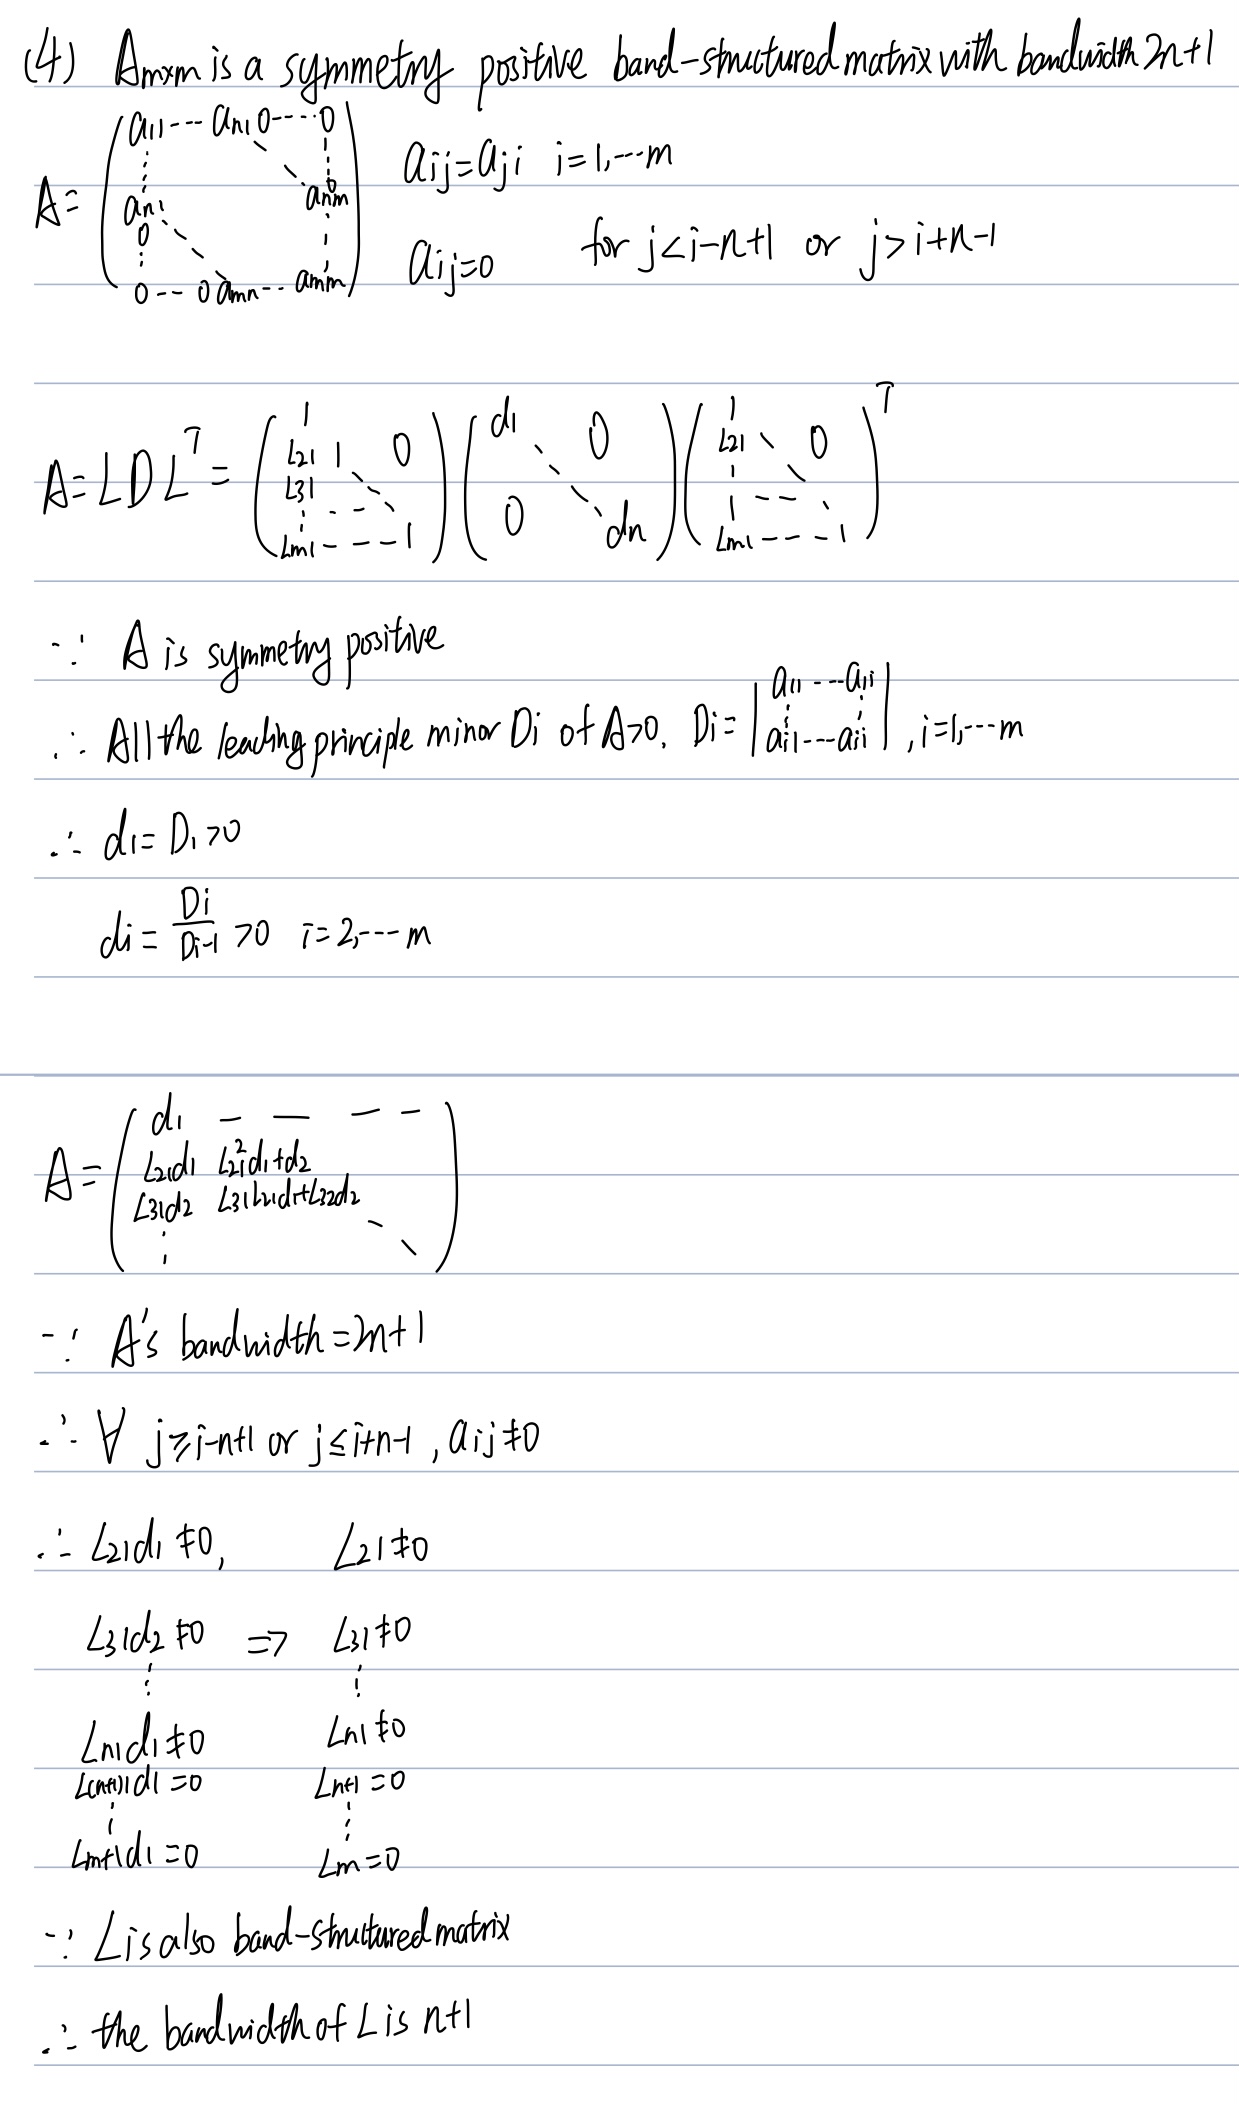 (4) Am×m is a symmetry positive band-structured matrix with bandwidth 2n+1
A= ( a11 --- an1 0 ---- 0
an1 anm
0
0 -- 0 amn -- amm )
aij=aji i=1,---m
aij=0 for j<i-n+1 or j>i+n-1
A=LDL^T = ( 1
L21 1 0
L31
Lm1 - - - - 1 ) ( d1 0
0 dn ) ( 1
L21 0
1
Lm1 - - - - 1 )^T
∵ A is symmetry positive
∴ All the leading principle minor Di of A>0, Di= | a11 --- a1i
ai1 --- aii | , i=1,---m
∴ d1= D1 >0
di = Di/Di-1 >0 i=2,---m
A= ( d1 - - - -
L21d1 L21²d1+d2
L31d2 L31L21d1+L32d2 )
∵ A's bandwidth=2n+1
∴ ∀ j≥i-n+1 or j≤i+n-1 , aij≠0
∴ L21d1 ≠0, L21≠0
L31d2 ≠0 => L31≠0
Ln1d1≠0 Ln1≠0
L(n+1)1d1 =0 Ln+1 =0
Lm+1d1 =0 Lm=0
∵ L is also band-structured matrix
∴ the bandwidth of L is n+1